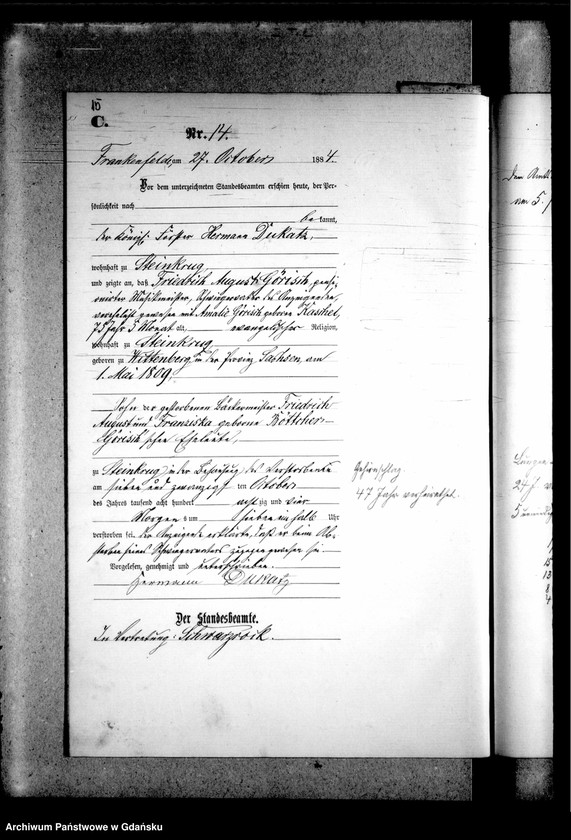 15
C.
Nr. 14.
Frankenfelde, am 27. October 1884.
Vor dem unterzeichneten Standesbeamten erschien heute, der Per-
sönlichkeit nach
bekannt,
der königl. Förster Hermann Dukatz,
wohnhaft zu Steinkrug
und zeigte an, daß Friedrich August Görisch, pensi-
onirter Musikmeister, Schwiegervater des Anzeigenden,
verehelicht gewesen mit Amalie Görisch geborene Kaschel,
75 Jahr 5 Monat alt, evangelischer Religion,
wohnhaft zu Steinkrug
geboren zu Wittenberg in der Provinz Sachsen, am
1. Mai 1809,
Sohn der gestorbenen Bäckermeister Friedrich
August und Franziska geborene Böttcher-
Görisch'schen Eheleute,
zu Steinkrug in der Behausung des Verstorbenen
am sieben und zwanzigsten October
des Jahres tausend acht hundert achtzig und vier
Morgens um sieben ein halb Uhr
verstorben sei. Der Anzeigende erklärte, daß er beim Ab-
sterben seines Schwiegervaters zugegen gewesen sei.
Vorgelesen, genehmigt und unterschrieben.
Hermann Dukatz
Der Standesbeamte.
In Vertretung: Schwarzrock.
Gehirnschlag.
47 Jahr verheirathet.
am 5.
24 J.
15
13
8
4
Archiwum Państwowe w Gdańsku